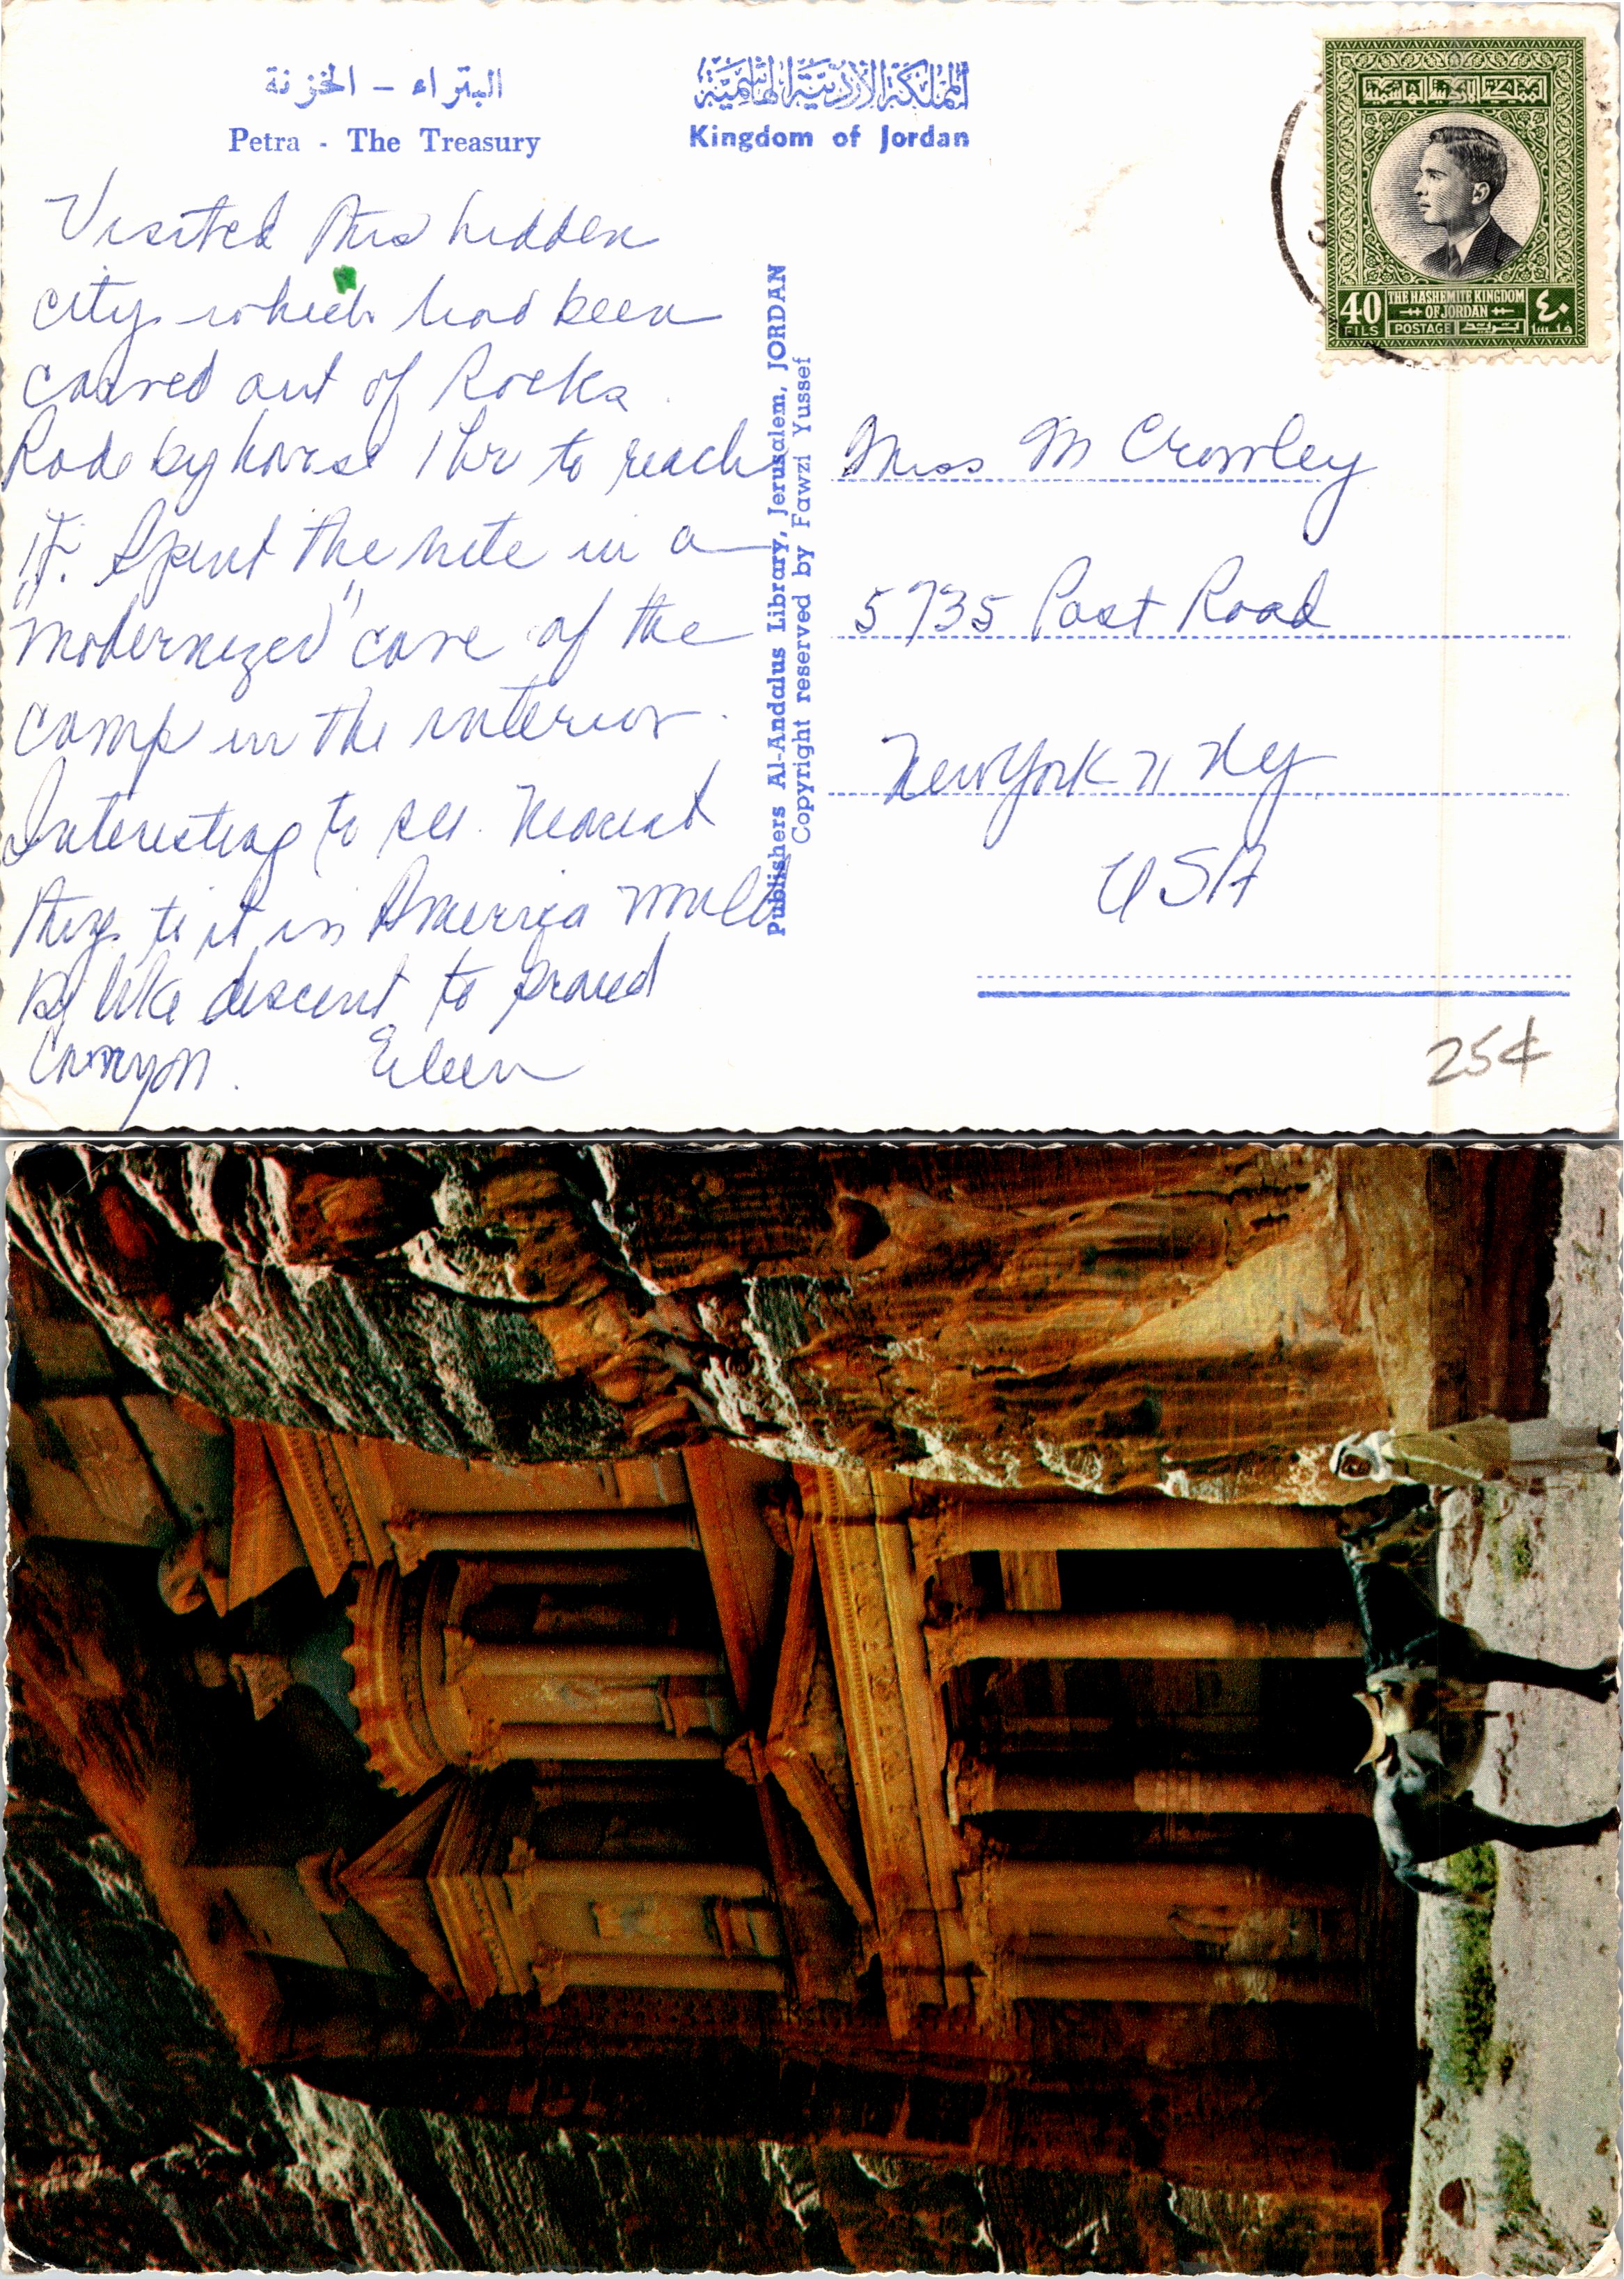 البتراء - الخزنة
Petra - The Treasury
المملكة الأردنية الهاشمية
Kingdom of Jordan
المملكة الأردنية الهاشمية
40
FILS
THE HASHEMITE KINGDOM
OF JORDAN
POSTAGE
بريد
٤٠
فلسا
Visited this hidden
city which had been
carved out of Rocks
Rode by horse 1 hr to reach
it. Spent the nite in a
"modernized" cave of the
camp in the interior.
Interesting to see. Nearest
thing to it in America would
be like descent to
Canyon. Eileen
Publishers Al-Andalus Library, Jerusalem, JORDAN
Copyright reserved by Fawzi Yussef
Miss M Crowley
5735 Post Road
New York 71 NY
USA
25¢